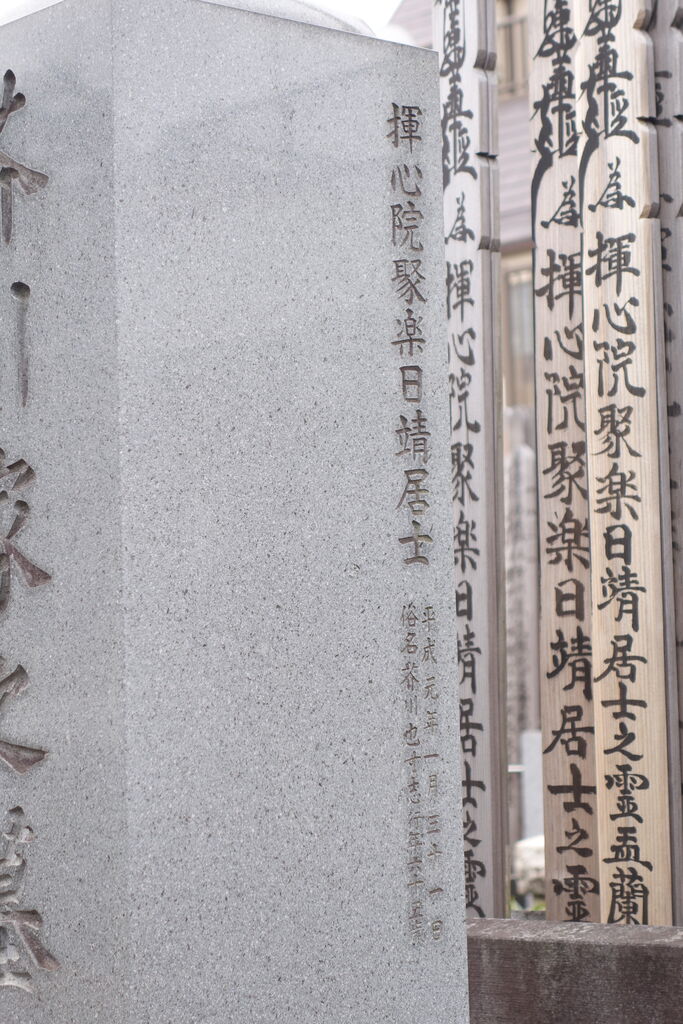 揮心院聚楽日靖居士
平成元年一月三十一日
俗名芥川也寸志行年六十三歳
川家之墓
為揮心院聚楽日靖居士之霊盂蘭
為揮心院聚楽日靖居士之霊
為揮心院聚楽日靖居士之霊